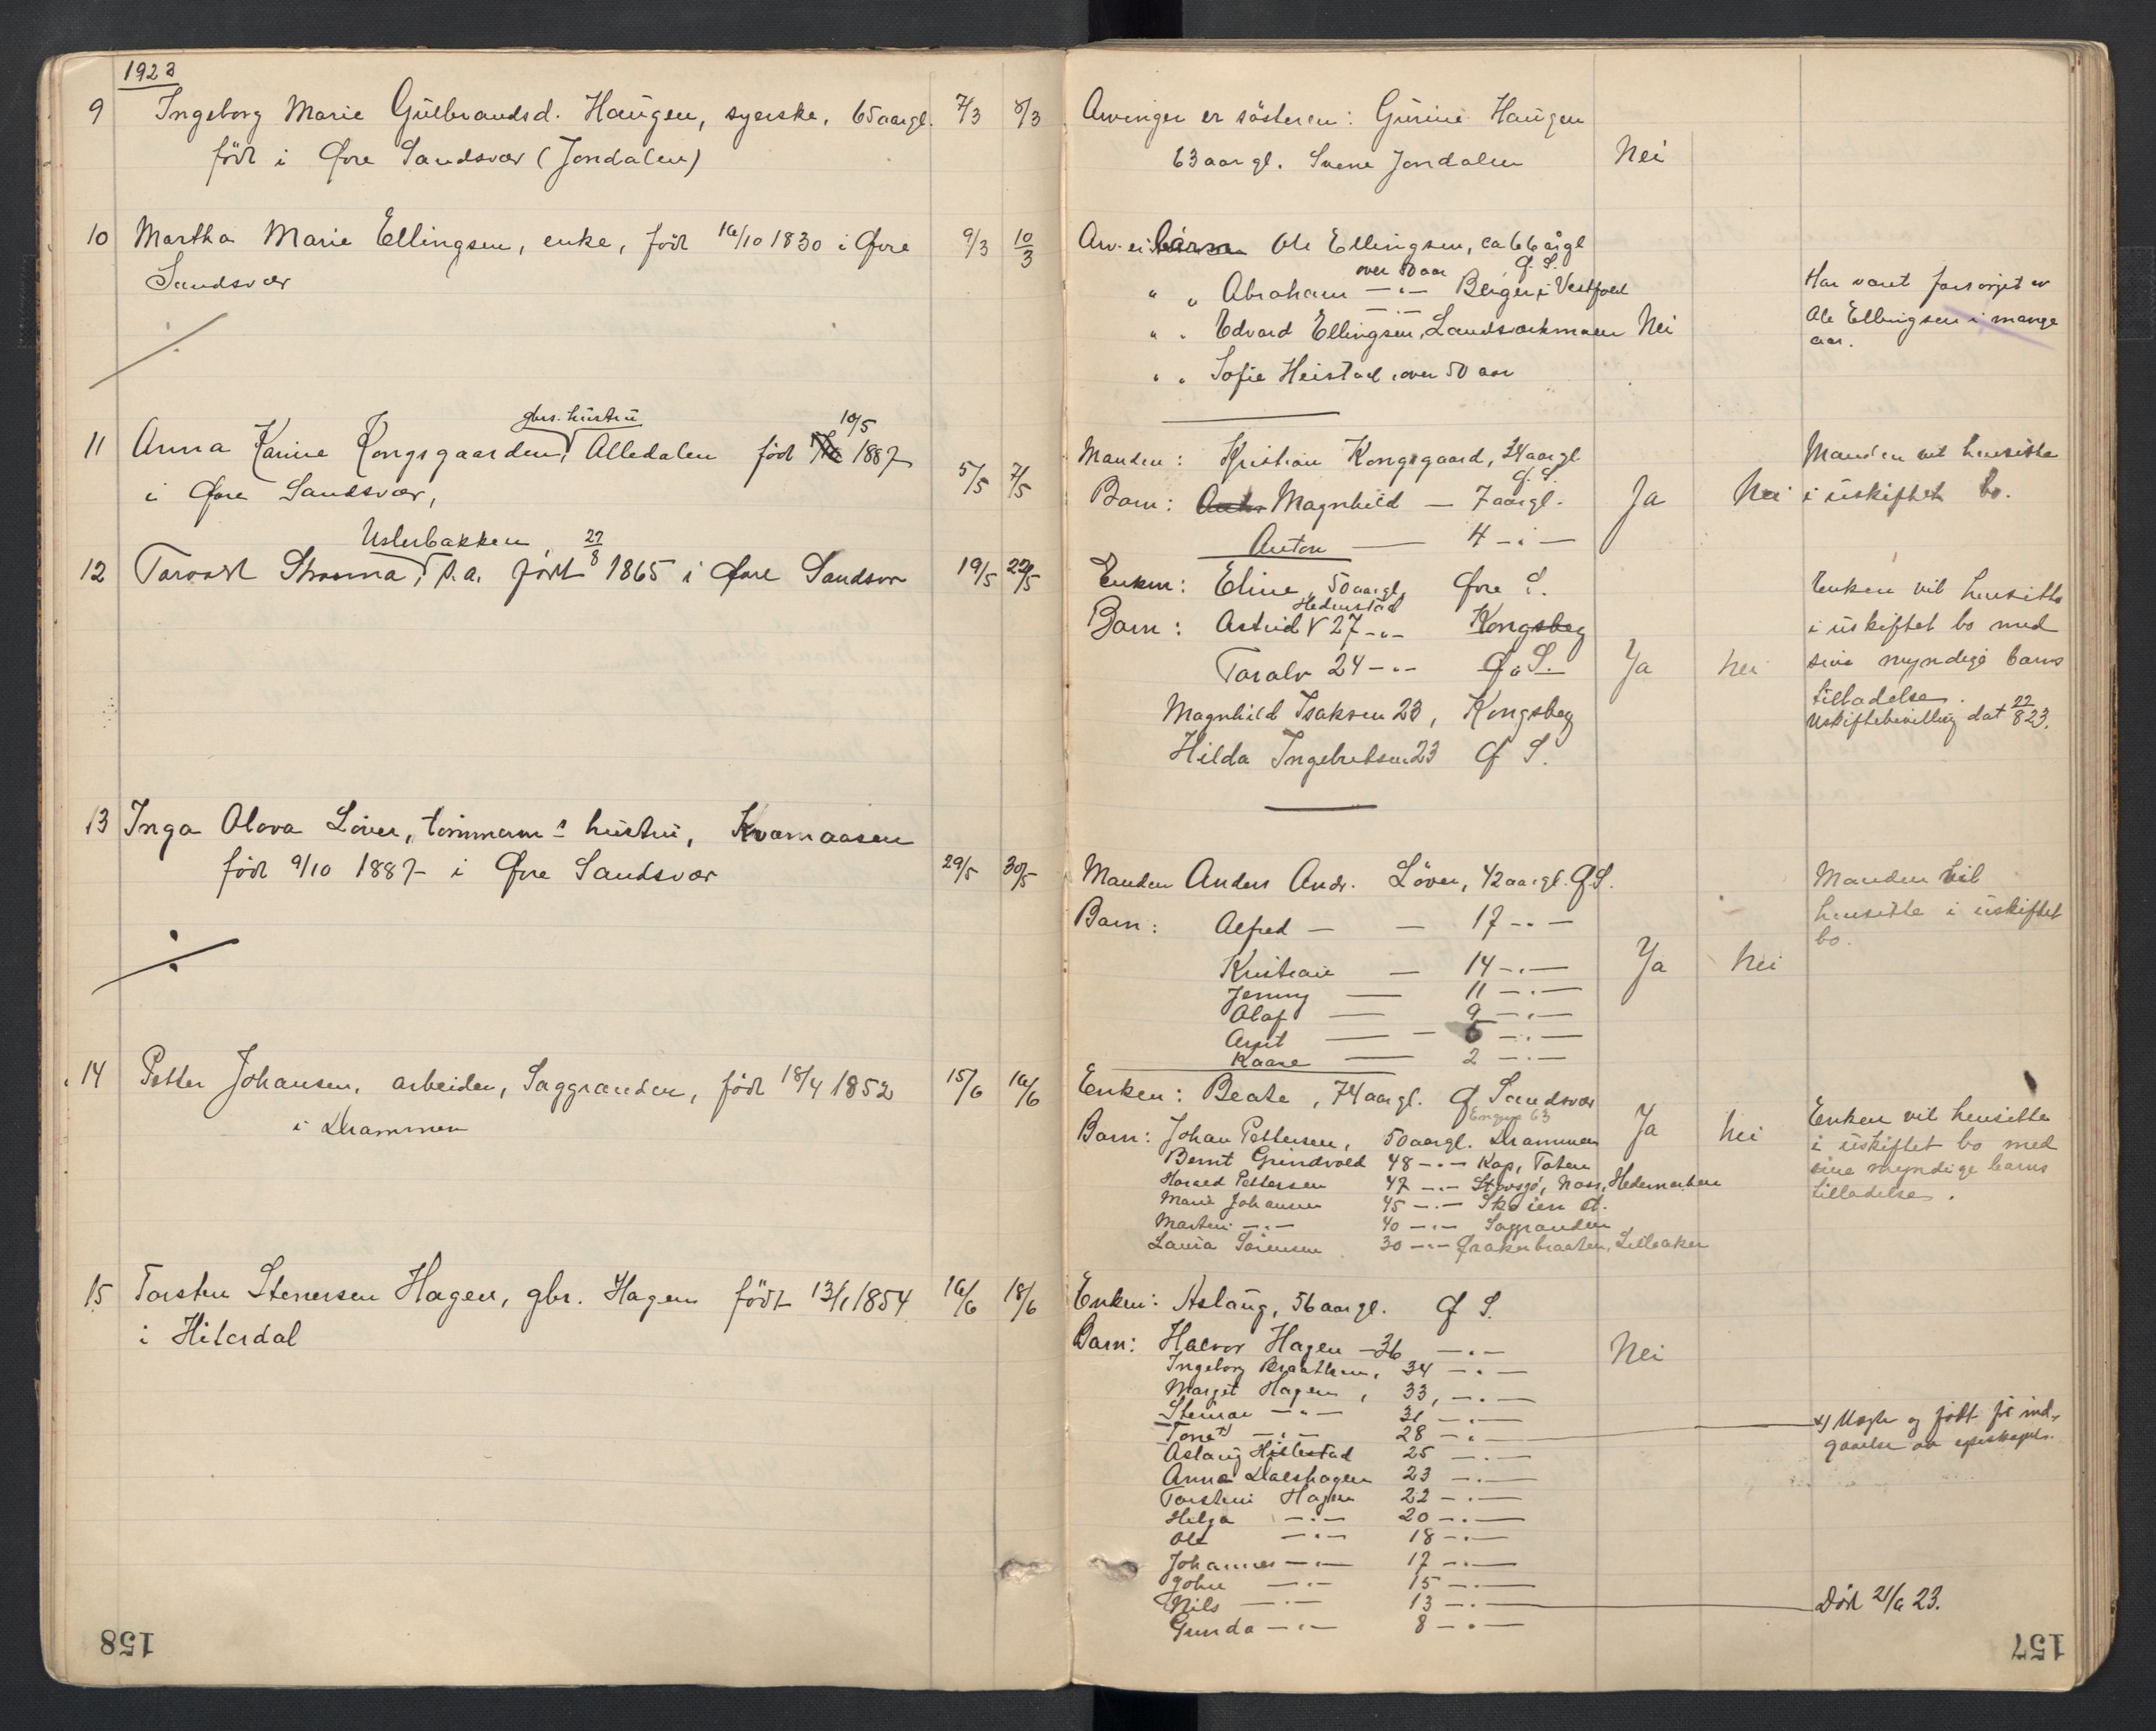 1923
9 Ingeborg Marie Gulbrandsd. Haugen, syerske, 65 aargl. 7/3 8/3
født i Øvre Sandsvær (Jondalen)
10 Martha Marie Ellingsen, enke, født 16/10 1830 i Øvre 9/3 10/3
Sandsvær
gbr. hustru
10/5
11 Anna Karine Kongsgaarden, Alledalen født 1887
i Øvre Sandsvær, 5/5 7/5
Uslerbakken 27/8
12 Taraald Stroma, f.a. født 1865 i Øvre Sandsvær 19/5 22/5
13 Inga Olava Løver, tømmerm.s hustru, Kvarnaasen
født 9/10 1887 i Øvre Sandsvær 29/5 30/5
14 Petter Johansen, arbeider, Saggranden, født 18/4 1852 15/6 16/6
i Drammen
15 Torsten Stenersen Hagen, gbr. Hagen født 13/1 1854 16/6 18/6
i Hiterdal
158
Arvinger er søsteren: Gurine Haugen
63 aar gl. Svene Jondalen Nei
Arv. er barn Ole Ellingsen, ca 66 årgl
over 50 aar Ø. S.
" " Abraham —"— Berger i Vestfold
" " Edvard Ellingsen, Landsværkmoen Nei
" " Sofie Heistad, over 50 aar
Har været forsørget av
Ole Ellingsen i mange
aar.
Manden: Kristian Kongsgaard, 34 aargl
Ø. S.
Barn: Magnhild — 7 aargl. Ja Nei
Anton — 4 —"—
Manden vil hensitte
i uskiftet bo.
Enken: Eline, 50 aargl, Øvre S.
Hedenstad
Barn: Astrid 27 —"— Kongsberg
Taralv 24 —"— Ø. S. Ja Nei
Magnhild Isaksen 23, Kongsberg
Hilda Ingebretsen 23 Ø S.
Enken vil hensitte
i uskiftet bo med
sine myndige barns
tilladelse.
Uskiftebevilling dat 22/8 23.
Manden Anders Andr. Løver, 42 aargl. Ø.S.
Barn: Alfred — — 17 —"—
Kristian — 14 —"— Ja Nei
Jenny — 11 —"—
Olaf — 9 —"—
Arnt — — 6 —"—
Kaare — 2 —"—
Manden vil
hensitte i uskiftet
bo.
Enken: Beate, 74 aargl. Ø Sandsvær
Barn: Johan Pettersen, 50 aargl. Drammen Ja Nei
Bernt Grindvold 48 —"— Kap, Toten
Harald Pettersen 47 —"— Stavsjø, Næss, Hedemarken
Marie Johansen 45 —"— Skøien st.
Martin —"— 40 —"— Saggranden
Laura Sørensen 30 —"— Øraker braaten, Lilleaker
Enken vil hensitte
i uskiftet bo med
sine myndige barns
tilladelse.
Enken: Aslaug, 56 aar gl. Ø S.
Barn: Halvor Hagen — 36 —"— Nei
Ingeborg Braathen, 34 —"—
Margit Hagen, 33, —"—
Steinar —"— 31 —"—
Tone x) —"— 28 —"—
Aslaug Hillestad 25 —"—
Anna Dalshagen 23 —"—
Torstein Hagen 22 —"—
Helga —"— 20 —"—
Ole —"— 18 —"—
Johannes —"— 17 —"—
John —"— 15 —"—
Nils —"— 13 —"—
Gunda —"— 8 —"—
x) Uegte og født før ind-
gaaelse av egteskapet.
Død 21/6 23.
157